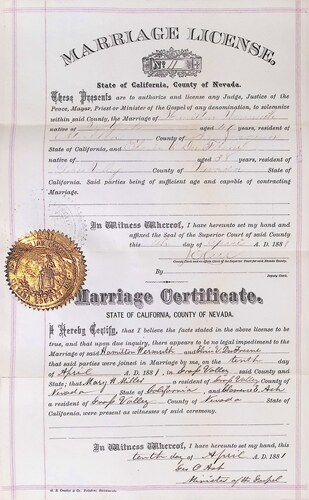 MARRIAGE LICENSE,
No. 11
State of California, County of Nevada.
These Presents are to authorize and license any Judge, Justice of the
Peace, Mayor, Priest or Minister of the Gospel of any denomination, to solemnize
within said County, the Marriage of Hamilton
native of aged resident of
County of
State of California, and
native of aged 38 years, resident of
County of Nevada
California. Said parties being of sufficient age and capable of contracting
Marriage.
In Witness Whereof, I have hereunto set my hand and
affixed the Seal of the Superior Court of said County
this day of April A. D. 1881
By
Deputy Clerk.
Marriage Certificate.
STATE OF CALIFORNIA, COUNTY OF NEVADA.
I Hereby Certify, that I believe the facts stated in the above license to be
true, and that upon due inquiry, there appears to be no legal impediment to the
Marriage of said Hamilton and
that said parties were joined in Marriage by me, on the tenth day
of April A. D. 1881, in Grass Valley said County and
State; that Mary H. Miller a resident of Grass Valley County of
Nevada State of California, and Clarence E. Ash
a resident of Grass Valley County of Nevada State of
California, were present as witnesses of said ceremony.
In Witness Whereof, I have hereunto set my hand, this
tenth day of April A. D. 1881
Geo. O. Ash
Minister of the Gospel